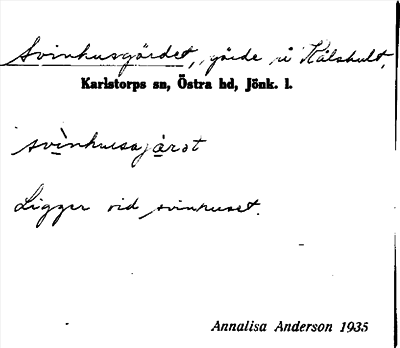 Svinhusgärdet, gärde å Kålshult,
Karlstorps sn, Östra hd, Jönk. l.
svìnhusajäret
Ligger vid svinhuset.
Annalisa Anderson 1935